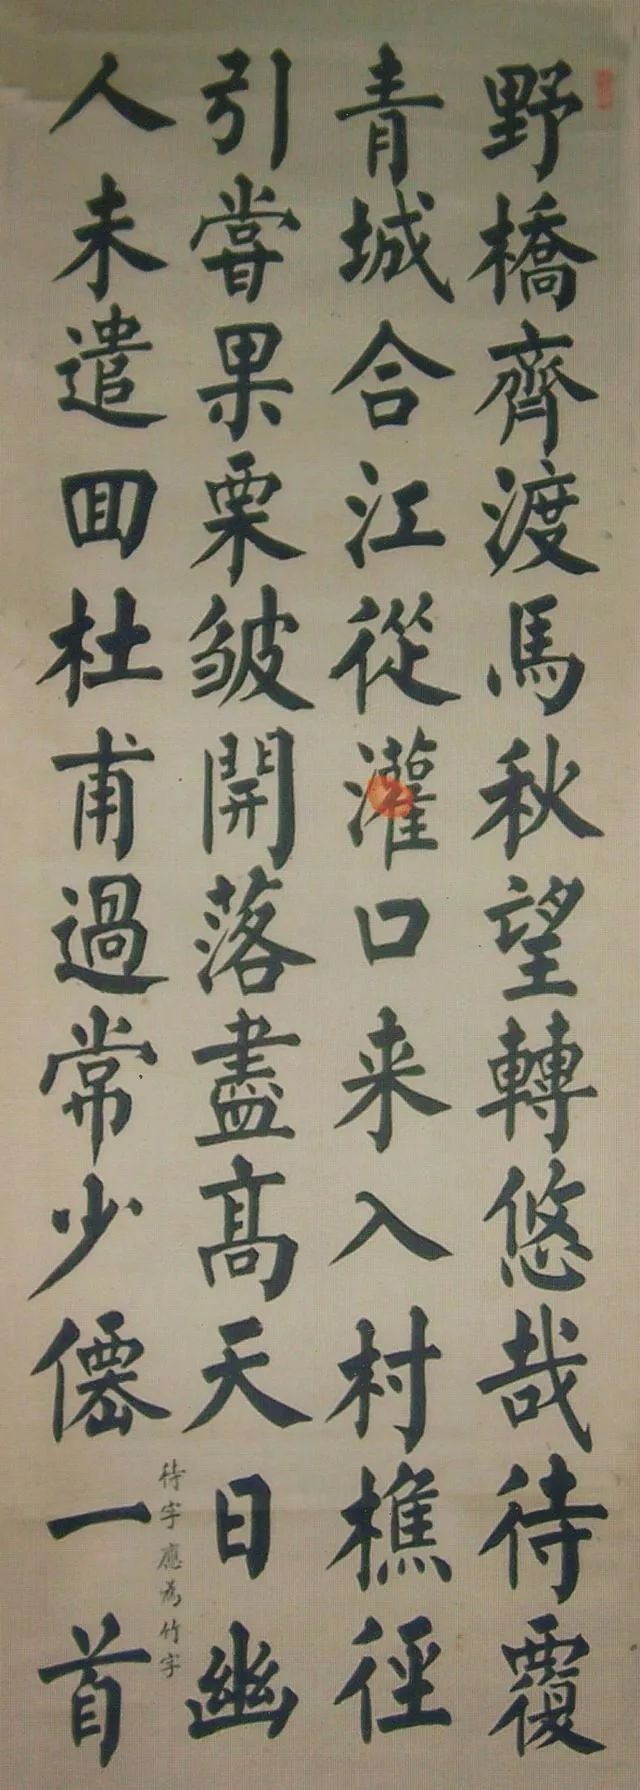 野橋齊渡馬秋望轉悠哉待覆
青城合江從灌口来入村樵徑
引嘗果栗皺開落盡髙天日幽
人未遣囬杜甫過常少僊一首
待字應為竹字